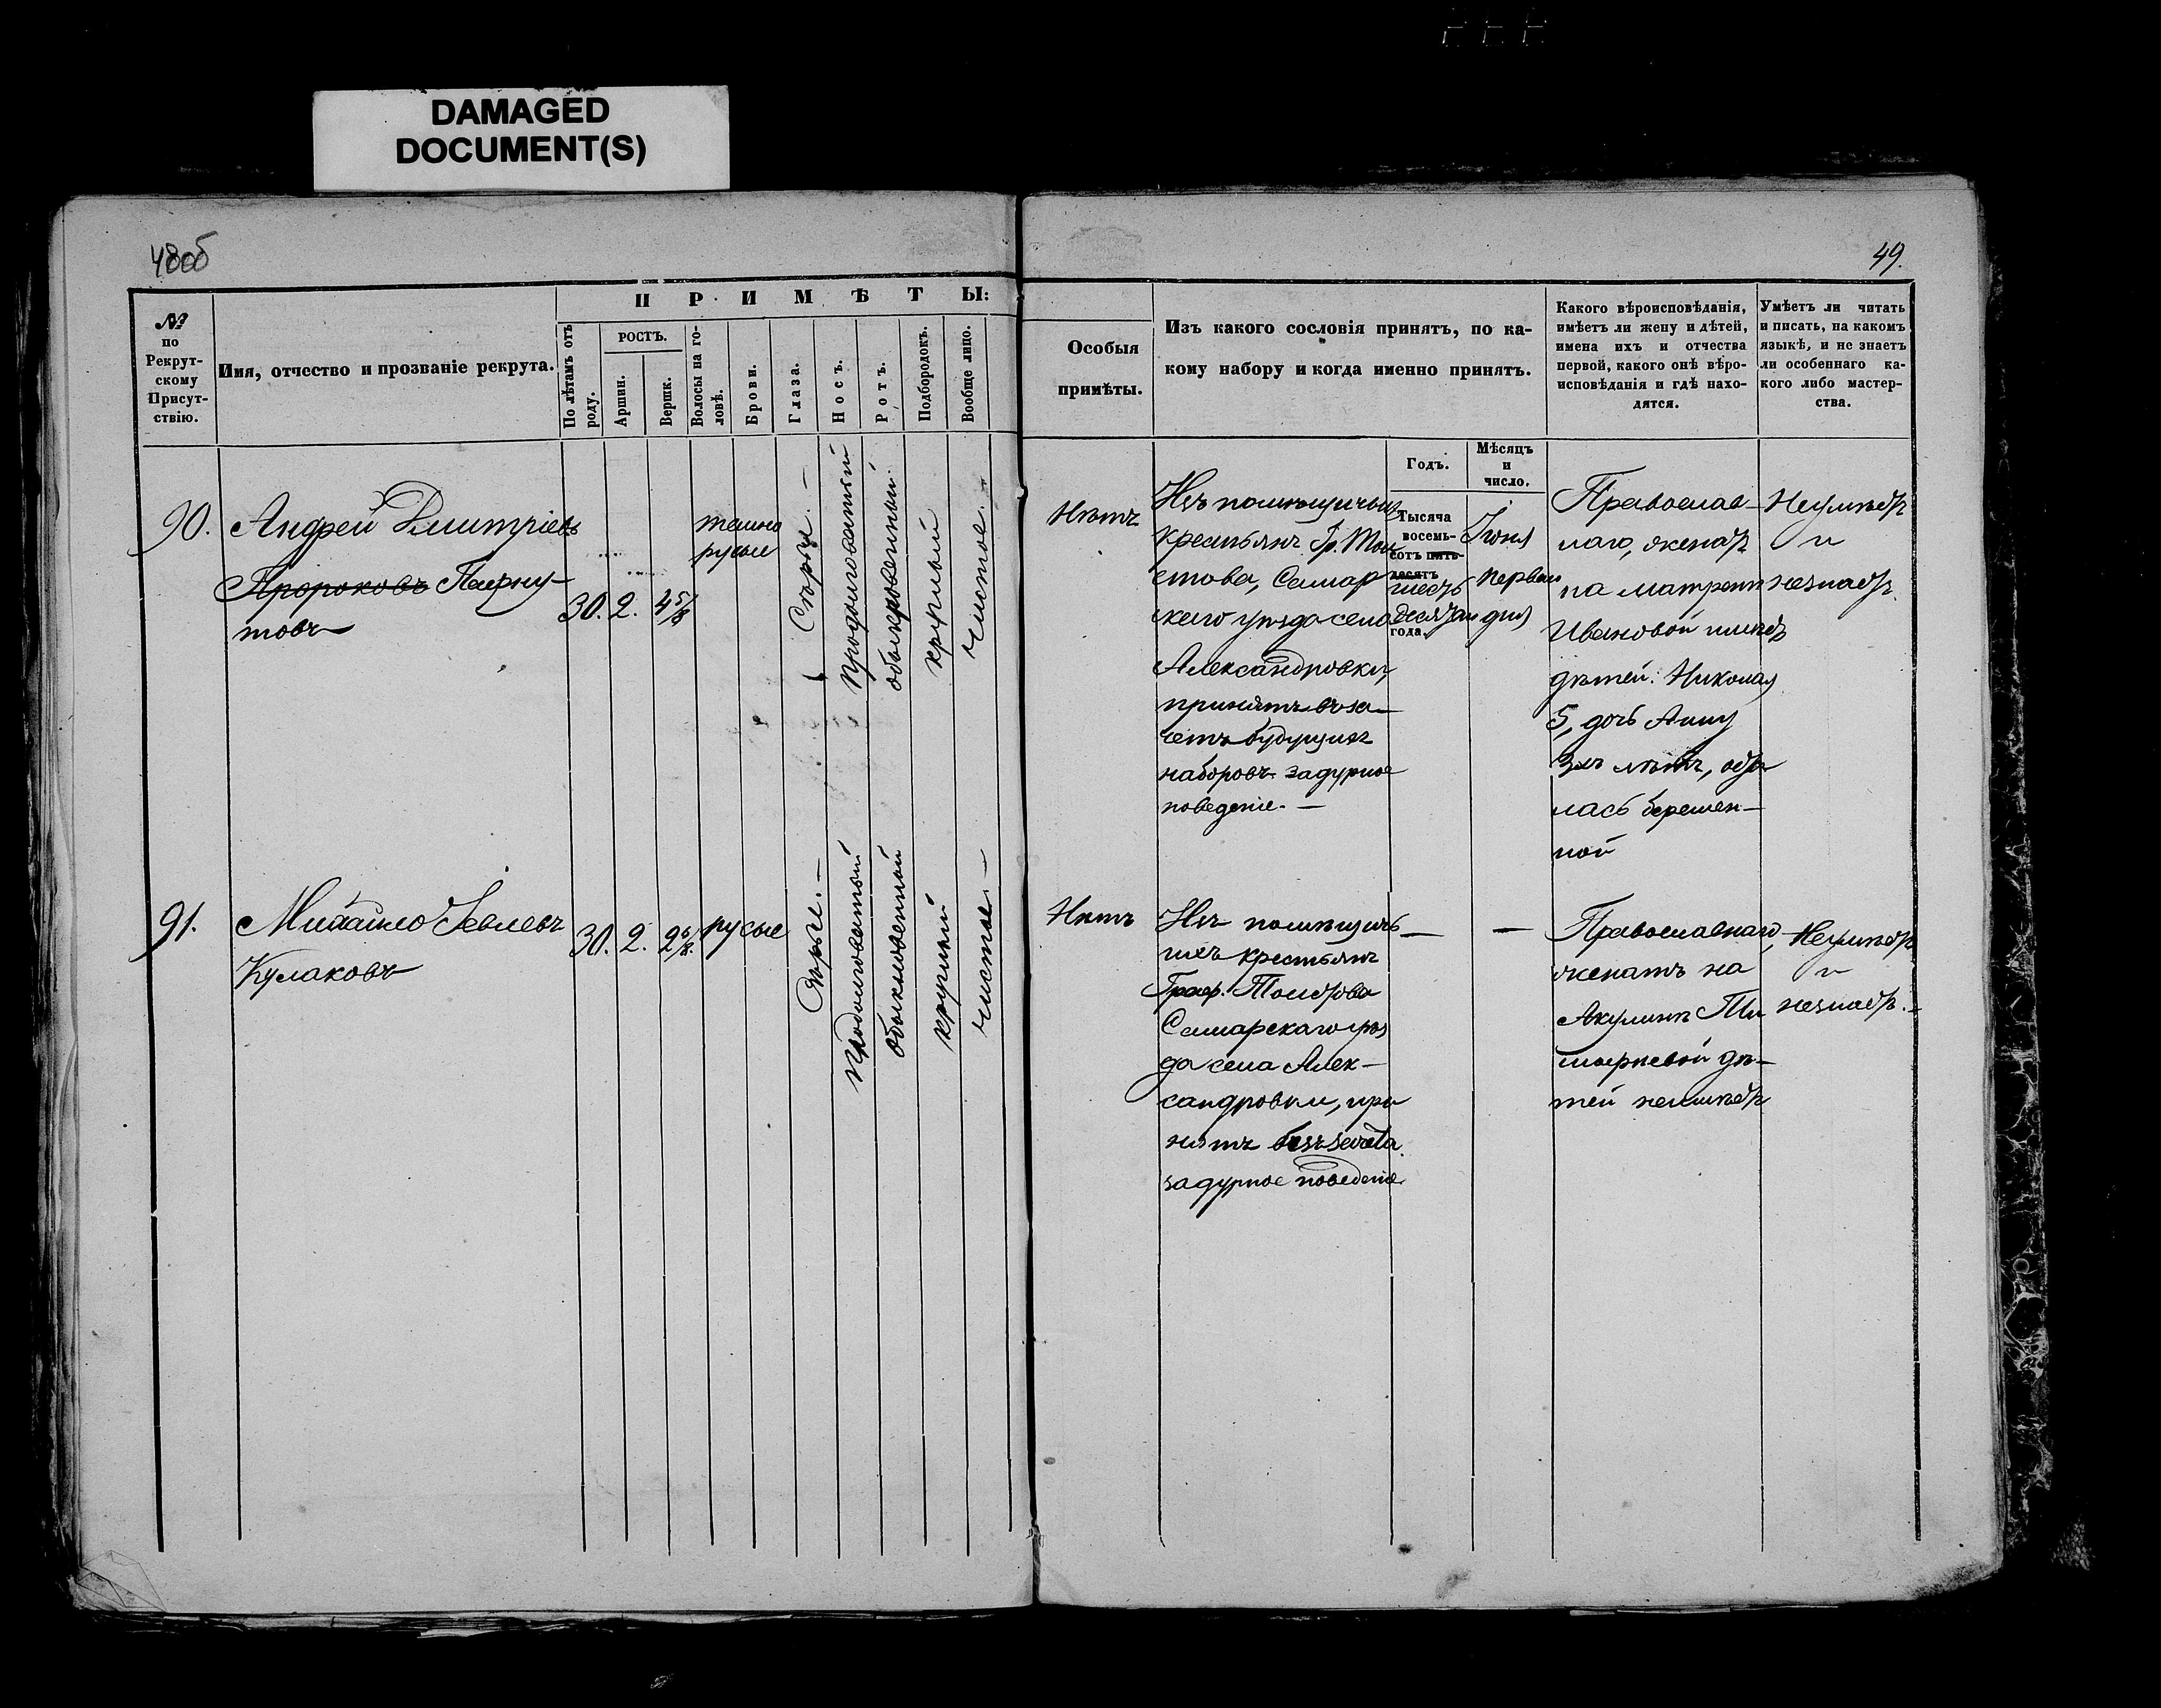 DAMAGED
DOCUMENT(S)
48об
49.
ПРИМѢТЫ:
№
по
Рекрут-
скому
Присут-
ствію.
Имя, отчество и прозваніе рекрута.
По лѣтамъ отъ
роду.
РОСТЪ.
Аршин.
Вершк.
Волосы на го-
ловѣ.
Брови.
Глаза.
Носъ.
Ротъ.
Подбородокъ.
Вообще лицо.
Особыя
примѣты.
Изъ какого сословія принятъ, по ка-
кому набору и когда именно принятъ.
Какого вѣроисповѣданія,
имѣетъ ли жену и дѣтей,
имена ихъ и отчества
первой, какого онѣ вѣро-
исповѣданія и гдѣ нахо-
дятся.
Умѣетъ ли читать
и писать, на какомъ
языкѣ, и не знаетъ
ли особеннаго ка-
кого либо мастер-
ства.
Годъ.
Мѣсяцъ
и
число.
90.
Андрей Дмитріевъ
Пророковъ Пафну-
товъ
30. 2. 4 5/8
темно
русые
Сѣрые. —
продолговатый
обыкновенный.
круглый
чистое. —
Нѣтъ
Изъ помѣщичьихъ
крестьянъ Гр. Тол
стова, Самар
скаго уѣзда села
Александровки,
принятъ въ за-
четъ будущихъ
наборовъ за дурное
поведеніе. —
Тысяча
восемь-
сотъ пять-
десятъ
шесть
десятаго
года.
Іюня
перваго
дня
Православ-
наго, женатъ
на Матренѣ
Ивановой имѣетъ
дѣтей: Николая
5, дочь Анну
3хъ лѣтъ, оста
лась беремен-
ной
Неумѣетъ
и
незнаетъ.
91.
Михайло Іевлевъ
Кулаковъ
30. 2. 2 6/8.
русые
Сѣрые. —
Продолговатый
обыкновенный
круглый
чистое —
Нѣтъ
Изъ помѣщичь-
ихъ крестьянъ
Граф. Толстова
Самарскаго уѣз
да села Алек-
сандровки, при
нятъ безъ зачета
за дурное поведеніе
—
—
Православнаго,
женатъ на
Акулинѣ Ти
мофеевой дѣ-
тей неимѣетъ
Неумѣетъ
и
незнаетъ. —